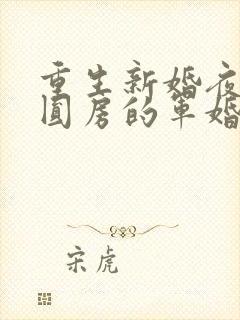 重生新婚夜
圆房的军婚
宋虎